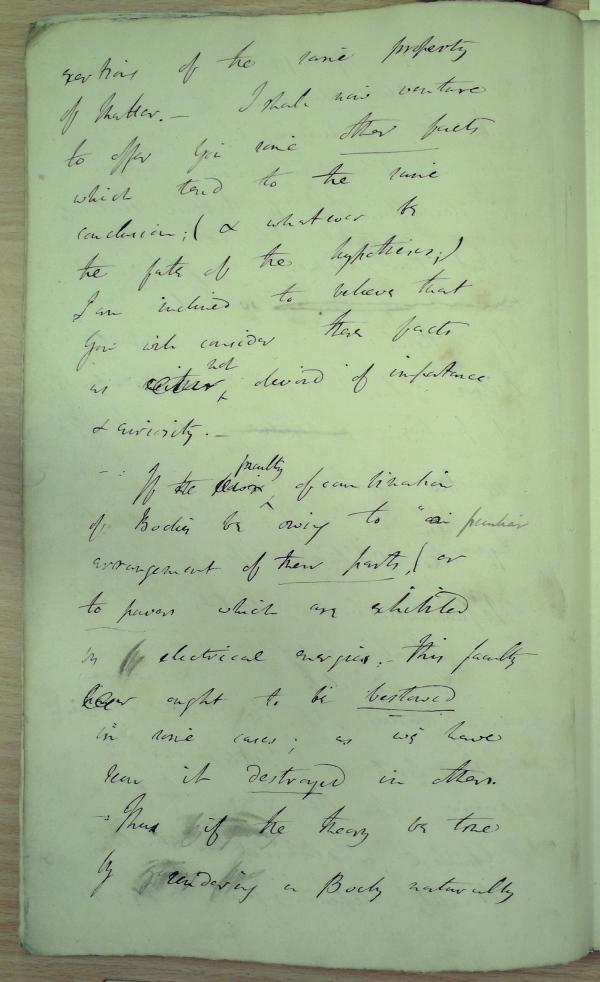 exertions of the same property
of Matter. – I shall now venture
to offer you some other facts
which tend to the same
conclusion; ( & whatever be
the fate of the hypothesis;)
I am inclined to believe that
you will consider these facts
as not devoid of importance
& curiosity. –
–: If the faculty of combination
of Bodies be owing to "a peculiar
arrangement of their parts, ( or
to powers which are exhibited
in electrical energies. – This faculty
ought to be bestowed
in some cases; as we have
seen it destroyed in others.
–: Thus if the theory be true
by rendering a Body naturally